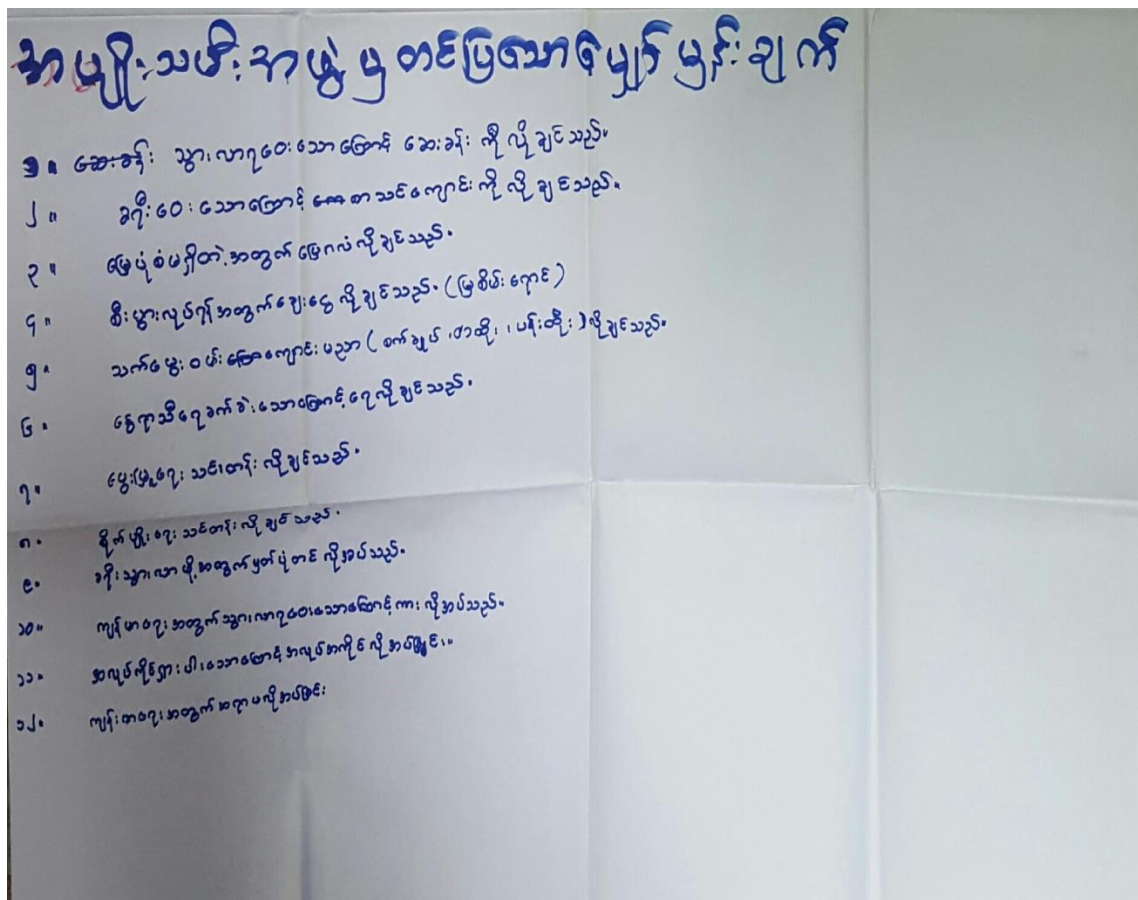 အမျိုးသမီးအဖွဲ့မှ တင်ပြသောမျှော်မှန်းချက်
၁။ ဆေးခန်း သွားလာရဝေးသောကြောင့် ဆေးခန်းကိုလိုချင်သည်။
၂။ ခရီးဝေးသောကြောင့် စာသင်ကျောင်းကိုလိုချင်သည်။
၃။ မြေပုံစံမရှိတဲ့အတွက်မြေဂလံလိုချင်သည်။
၄။ စီးပွားလုပ်ရန်အတွက်ချေးငွေလိုချင်သည်။ (မြစိမ်းရောင်)
၅။ သက်မွေးဝမ်းကျောင်းပညာ (စက်ချုပ်၊ဇာထိုး၊ပန်းထိုး)လိုချင်သည်။
၆။ နွေရာသီရေခက်ခဲးသောကြောင့်ရေလိုချင်သည်။
၇။ မွေးမြူရေးသင်တန်းလိုချင်သည်။
၈။ စိုက်ပျိုးရေးသင်တန်းလိုချင်သည်။
၉။ ခရီးသွားလာဖို့အတွက်မှတ်ပုံတင်လိုအပ်သည်။
၁၀။ ကျန်မာရေးအတွက်သွားလာရဝေးသောကြောင့်ကားလိုအပ်သည်။
၁၁။ အလုပ်ကိုင်ရှားပါးသောကြောင့်အလုပ်အကိုင်လိုအပ်ခြင်း။
၁၂။ ကျန်းမာရေးအတွက်ဆရာမလိုအပ်ခြင်း